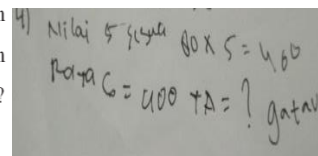 n 4) Nilai 5 siswa 80 x 5 = 400
n Raya 6 = 400 + A = ? gatau
?